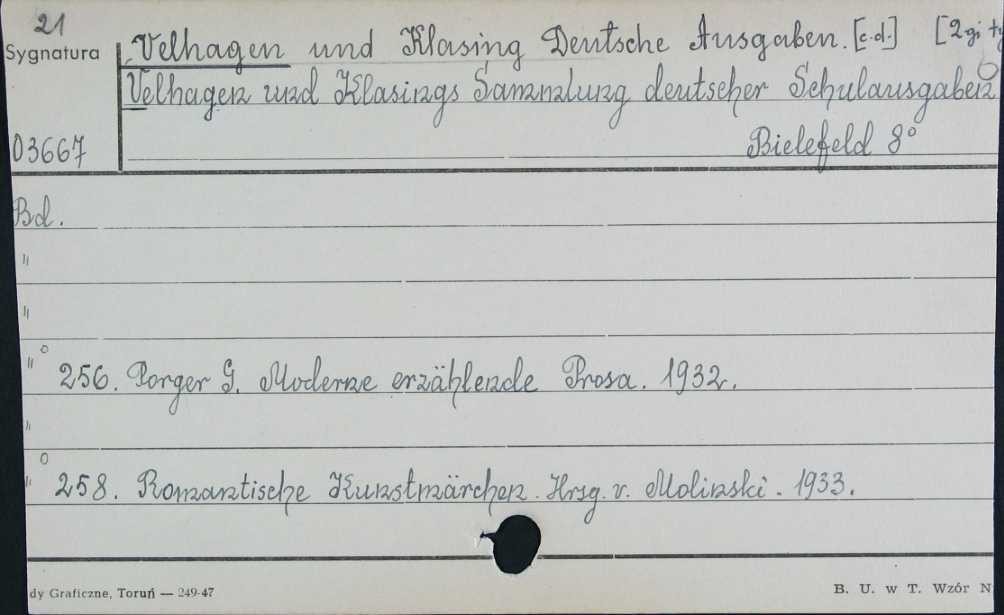 21
Sygnatura Velhagen und Klasing Deutsche Ausgaben. [c.d.] [2gi ty
Velhagen und Klasings Sammlung deutscher Schulausgaben
03667 Bielefeld 8°
Bd.
"
"
" ° 256. Porger G. Moderne erzählende Prosa. 1932.
"
" ° 258. Romantische Kunstmärchen. Hrsg. v. Molinski. 1933.
dy Graficzne, Toruń — 249-47 B. U. w T. Wzór N